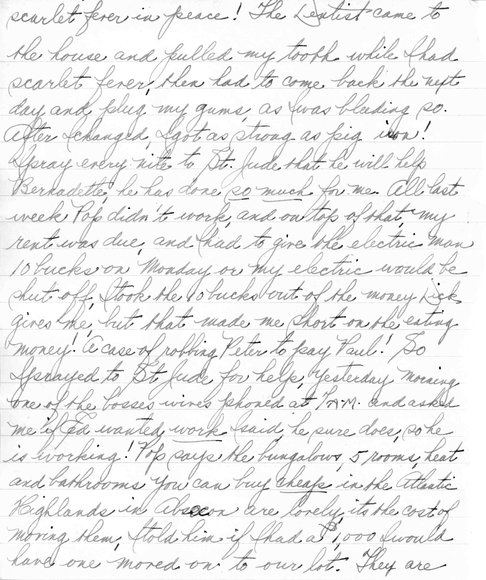 scarlet fever in peace! The Dentist came to
the house and pulled my tooth while I had
scarlet fever, then had to come back the next
day and plug my gums, as I was bleeding so.
After I changed, I got as strong as pig iron!
I pray every nite to St. Jude that he will help
Bernadette, he has done so much for me. All last
week Pop didn't work, and on top of that, my
rent was due, and I had to give the electric man
10 bucks on Monday or my electric would be
shut off, I took the 10 bucks out of the money Dick
gives me, but that made me short on the eating
money! A case of robbing Peter to pay Paul! So
I prayed to St. Jude for help, yesterday morning
one of the bosses wives phoned at 7 A.M. and asked
me if Ed wanted work I said he sure does, so he
is working! Pop says the bungalows, 5 rooms, heat
and bathrooms you can buy cheap in the Atlantic
Highlands in Absecon are lovely, its the cost of
moving them, I told him if I had a $1,000 I would
have one moved on to our lot. They are